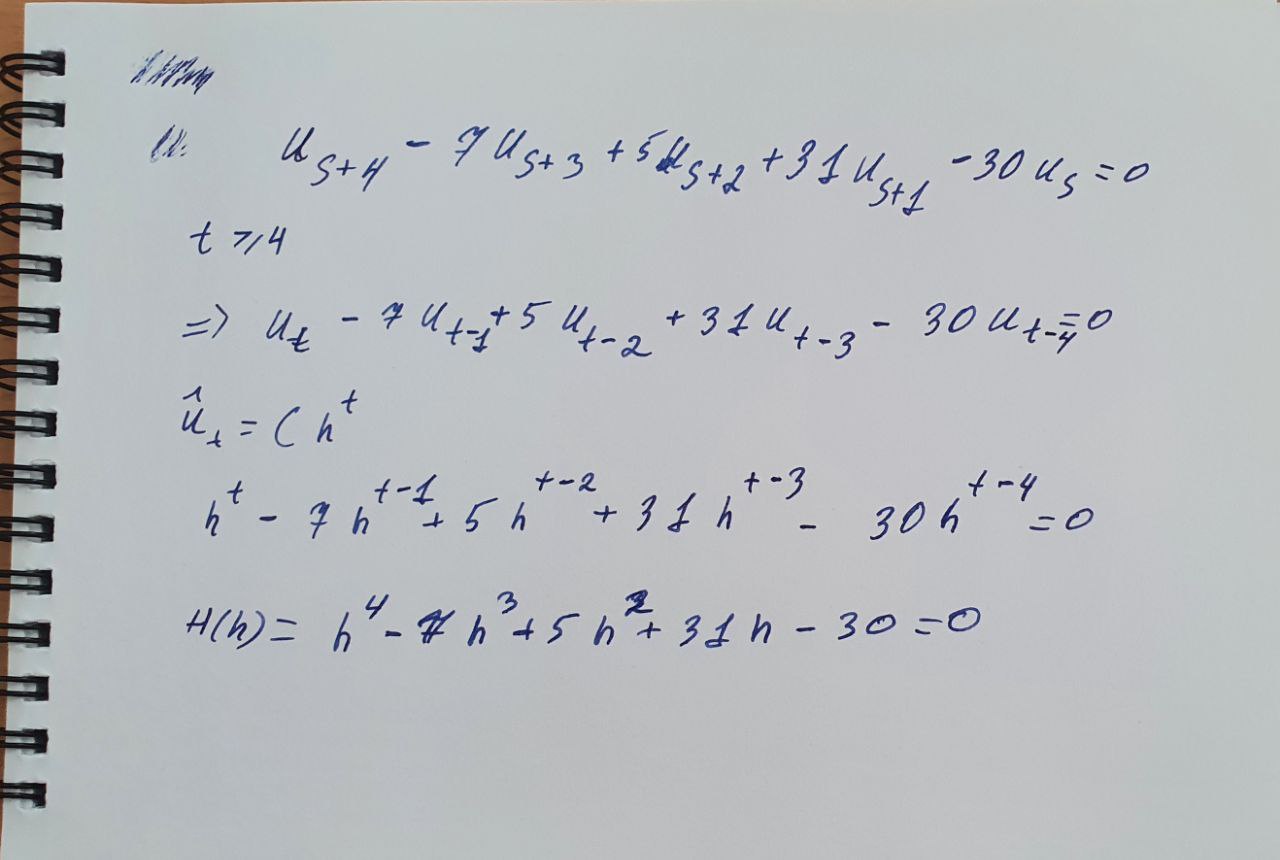 u_{s+4} - 7u_{s+3} + 5u_{s+2} + 31u_{s+1} - 30u_s = 0
t ⩾ 4
=> u_t - 7u_{t-1} + 5u_{t-2} + 31u_{t-3} - 30u_{t-4} = 0
û_t = C h^t
h^t - 7h^{t-1} + 5h^{t-2} + 31h^{t-3} - 30h^{t-4} = 0
H(h) = h^4 - 7h^3 + 5h^2 + 31h - 30 = 0